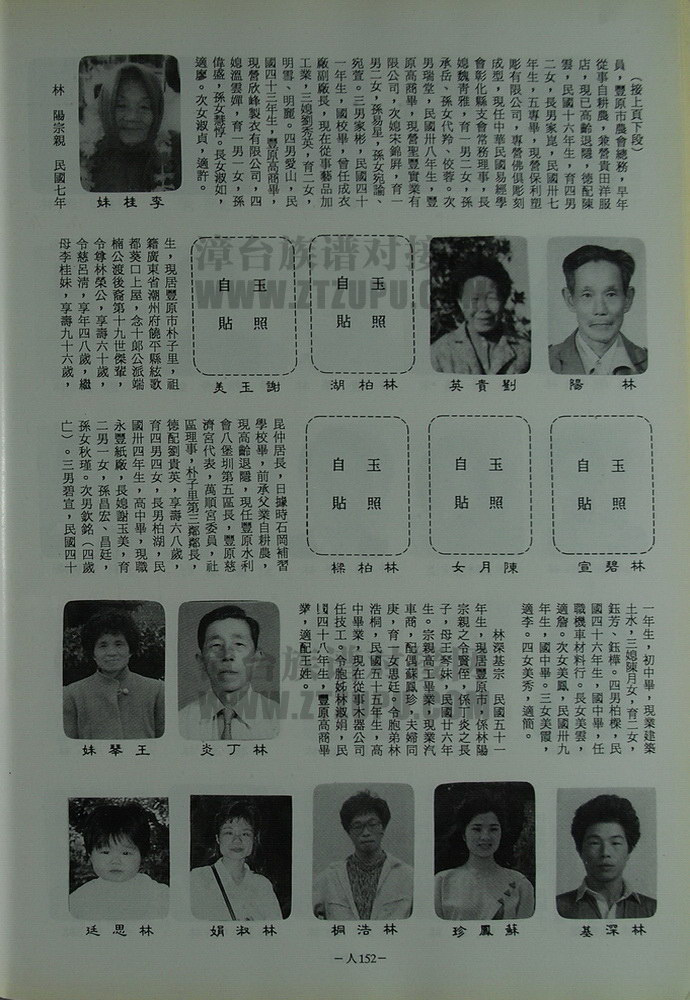 （接上頁下段）
員，豐原市農會總務，早年
從事自耕農，兼營貴田洋服
店，現已高齡退隱，德配陳
雲，民國十六年生，育四男
二女，長男家崑，民國卅七
年生，五專畢，現營保利塑
彫有限公司，專營佛俱彫刻
成型，現任中華民國易經學
會彰化縣支會常務理事，長
媳魏青雅，育一男二女，孫
承岳、孫女代羚、佼蓉。次
男瑞堂，民國卅八年生，豐
原高商畢，現營聖豐實業有
限公司，次媳宋錦屏，育一
男二女，孫易星，孫女宛諭、
宛萱。三男家彬，民國四十
一年生，國校畢，曾任成衣
廠副廠長，現在從事藝品加
工業，三媳劉秀英，育二女，
明雪、明麗。四男愛山，民
國四十三年生，豐原高商畢，
現營欣峰製衣有限公司，四
媳溫雲嬋，育一男一女，孫
偉盛，孫女慧惇。長女淑如，
適廖。次女淑貞，適許。
妹桂李
林　陽宗親　民國七年
生，現居豐原市朴子里，祖
籍廣東省潮州府饒平縣絃歌
都葵口上屋，念十郎公派端
楠公渡後裔第十九世傑輩，
令尊林榮公，享壽六十歲，
令慈呂清，享年四八歲，繼
母李桂妹，享壽九十六歲，
陽　林
英貴劉
玉照
自貼
湖柏林
玉照
自貼
美玉謝
昆仲居長，日據時石岡補習
學校畢，前承父業自耕農，
現高齡退隱，現任豐原水利
會八堡圳第五區長，豐原慈
濟宮代表，萬順宮委員，社
區理事，朴子里第三鄰鄰長，
德配劉貴英，享壽六八歲，
育四男四女，長男柏湖，民
國卅四年生，高中畢，現職
永豐紙廠，長媳謝玉美，育
二男一女，孫昌宏、昌廷，
孫女秋瑾。次男欽銘（四歲
亡）。三男碧宣，民國四十
玉照
自貼
宣碧林
玉照
自貼
女月陳
玉照
自貼
樑柏林
一年生，初中畢，現業建築
土水，三媳陳月女，育二女，
鈺芳、鈺樺。四男柏樑，民
國四十六年生，國中畢，任
職機車材料行。長女美雲，
適詹。次女美鳳，民國卅九
年生，國中畢。三女美霞，
適李。四女美秀，適簡。
林深基宗　民國五十一
年生，現居豐原市，係林陽
宗親之令賢侄，係丁炎之長
子，母王琴妹，民國廿六年
生。宗親高工畢業，現業汽
車商，配偶蘇鳳珍，夫婦同
庚，育一女思廷。令胞弟林
浩桐，民國五十五年生，高
中畢業，現在從事木器公司
任技工。令胞姊林淑娟，民
國四十八年生，豐原高商畢
業，適配王姓。
炎丁林
妹琴王
基深林
珍鳳蘇
桐浩林
娟淑林
廷思林
－人152－
漳台族谱对接
WWW.ZTZUPU.COM